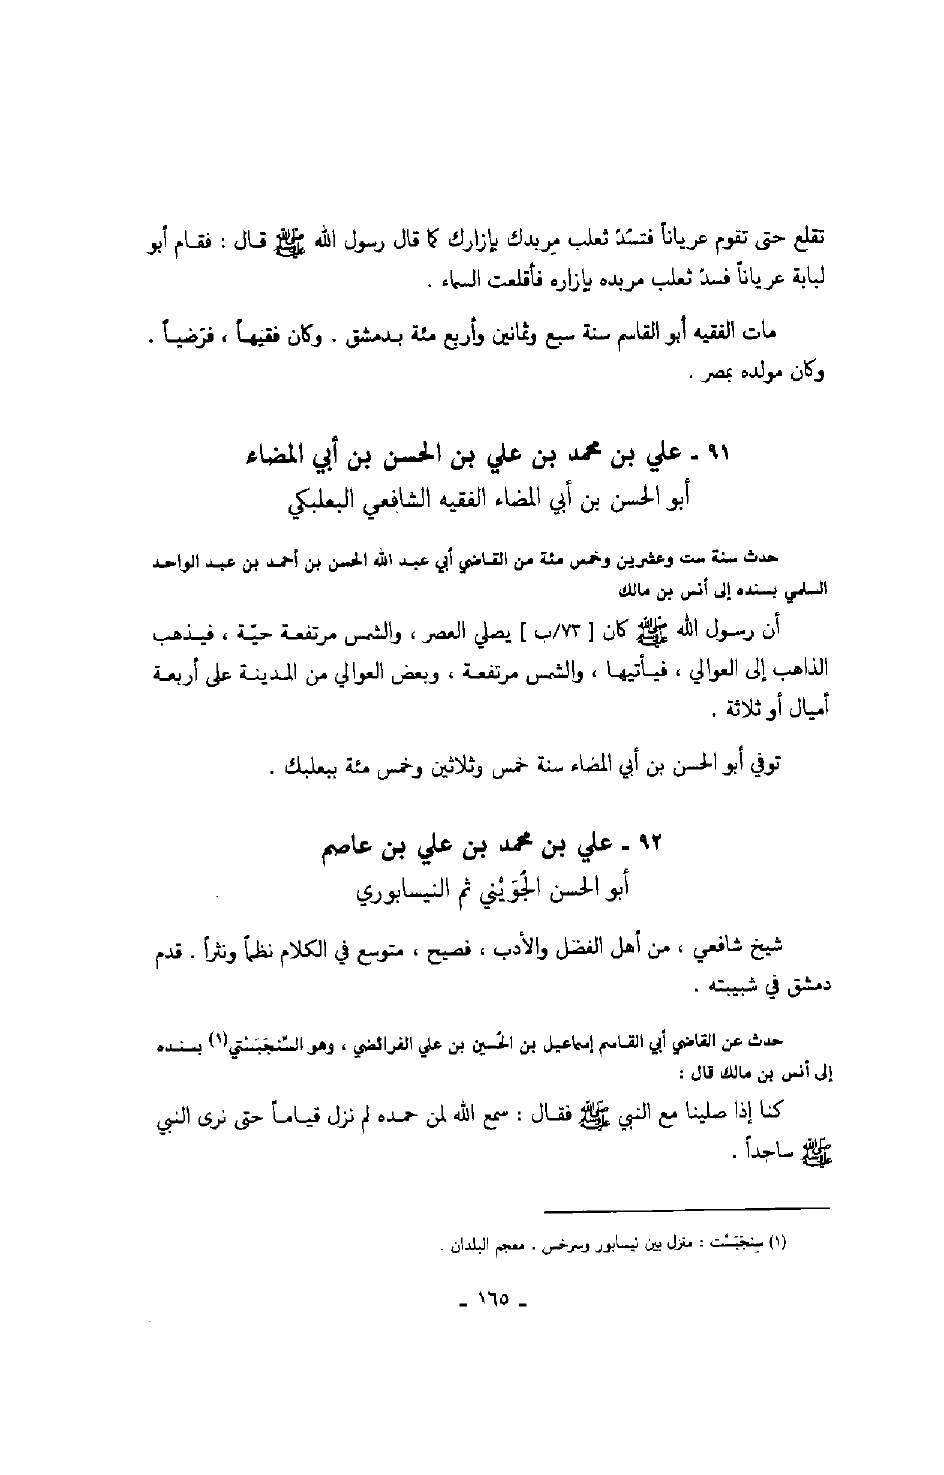 تقلع حتى تقوم عرياناً فتسُدّ ثعلب مِربدك بإزارك كا قال رسول الله ﷺ قال : فقام أبو
لبابة عرياناً فسدّ ثعلب مربده بإزاره فأقلعت السماء .
مات الفقيه أبو القاسم سنة سبع وثمانين وأربع مئة بدمشق . وكان فقيهاً ، فرَضياً .
وكان مولده بمصر .
٩١ ـ علي بن محمد بن علي بن الحسن بن أبي المضاء
أبو الحسن بن أبي المضاء الفقيه الشافعي البعلبكي
حدث سنة ست وعشرين وخمس مئة من القاضي أبي عبد الله الحسن بن أحمد بن عبد الواحد
السلمي بسنده إلى أنس بن مالك
أن رسول الله ﷺ كان [ ٧٣/ب ] يصلي العصر ، والشمس مرتفعة حيّة ، فيذهب
الذاهب إلى العوالي ، فيأتيها ، والشمس مرتفعة ، وبعض العوالي من المدينة على أربعة
أميال أو ثلاثة .
توفي أبو الحسن بن أبي المضاء سنة خمس وثلاثين وخمس مئة ببعلبك .
٩٢ ـ علي بن محمد بن علي بن عاصم
أبو الحسن الجُوَيْني ثم النيسابوري
شيخ شافعي ، من أهل الفضل والأدب ، فصيح ، متوسع في الكلام نظماً ونثراً . قدم
دمشق في شبيبته .
حدث عن القاضي أبي القاسم إسماعيل بن الحُسين بن علي الفرائضي ، وهو السَّنجَبَسْتي(١) بسنده
إلى أنس بن مالك قال :
كنا إذا صلينا مع النبي ﷺ فقال : سمع الله لمن حمده لم نزل قياماً حتى نرى النبي
ﷺ ساجداً .
(١) سِنجَبَسْت : منزل بين نيسابور وسرخس . معجم البلدان .
ـ ١٦٥ ـ